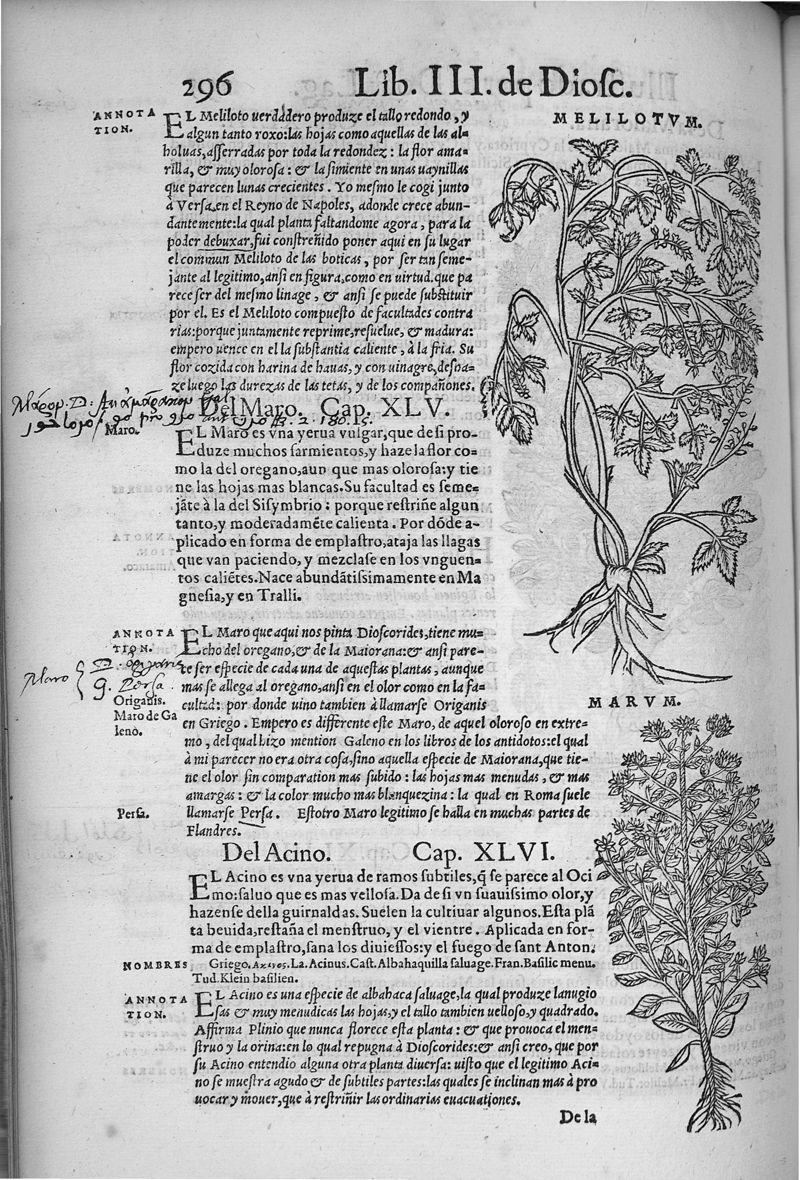 296 Lib. III. de Diosc.
ANNOTA
TION.
MELILOTVM.
EL Meliloto uerdadero produze el tallo redondo, y
algun tanto roxo: las hojas como aquellas de las al=
holuas, asserradas por toda la redondez: la flor ama=
rilla, & muy olorosa: & la simiente en unas uaynillas
que parecen lunas crecientes. Yo mesmo le cogi junto
à Versa, en el Reyno de Napoles, adonde crece abun=
dantemente: la qual planta faltandome agora, para la
poder debuxar, fui constreñido poner aqui en su lugar
el commun Meliloto de las boticas, por ser tan seme=
jante al legitimo, ansi en figura, como en uirtud. que pa
rece ser del mesmo linage, & ansi se puede substituir
por el. Es el Meliloto compuesto de facultades contra
rias: porque juntamente reprime, resuelue, & madura:
empero uence en el la substantia caliente, à la fria. Su
flor cozida con harina de hauas, y con uinagre, desha=
ze luego las durezas de las tetas, y de los compañones.
Del Maro. Cap. XLV.
Maro.
EL Maro es vna yerua vulgar, que de si pro-
duze muchos sarmientos, y haze la flor co-
mo la del oregano, aun que mas olorosa: y tie
ne las hojas mas blancas. Su facultad es seme-
jãte à la del Sisymbrio: porque restriñe algun
tanto, y moderadamẽte calienta. Por dõde a-
plicado en forma de emplastro, ataja las llagas
que van paciendo, y mezclase en los vnguen-
tos caliẽtes. Nace abundãtissimamente en Ma
gnesia, y en Tralli.
ANNOTA
TION.
EL Maro que aqui nos pinta Dioscorides, tiene mu=
cho del oregano, & de la Maiorana: & ansi pare=
ce ser especie de cada una de aquestas plantas, aunque
mas se allega al oregano, ansi en el olor como en la fa=
cultad: por donde uino tambien à llamarse Origanis
en Griego. Empero es differente este Maro, de aquel oloroso en extre=
mo, del qual hizo mention Galeno en los libros de los antidotos: el qual
à mi parecer no era otra cosa, sino aquella especie de Maiorana, que tie=
ne el olor sin comparation mas subido: las hojas mas menudas, & mas
amargas: & la color mucho mas blanquezina: la qual en Roma suele
llamarse Persa. Estotro Maro legitimo se halla en muchas partes de
Flandres.
Maro
Persa
Origanis.
Maro de Ga
leno.
Persa.
MARVM.
Del Acino. Cap. XLVI.
EL Acino es vna yerua de ramos subtiles, q̃ se parece al Oci
mo: saluo que es mas vellosa. Da de si vn suauissimo olor, y
hazense della guirnaldas. Suelen la cultiuar algunos. Esta plã
ta beuida, restaña el menstruo, y el vientre. Aplicada en for-
ma de emplastro, sana los diuiessos: y el fuego de sant Anton.
NOMBRES Griego, Ακινος. La. Acinus. Cast. Albahaquilla saluage. Fran. Basilic menu.
Tud. Klein basilien.
ANNOTA
TION.
EL Acino es una especie de albahaca saluage, la qual produze lanugio
sas & muy menudicas las hojas, y el tallo tambien uelloso, y quadrado.
Affirma Plinio que nunca florece esta planta: & que prouoca el men=
struo y la orina: en lo qual repugna à Dioscorides: & ansi creo, que por
su Acino entendio alguna otra planta diuersa: uisto que el legitimo Aci=
no se muestra agudo & de subtiles partes: las quales se inclinan mas à pro
uocar y mouer, que à restriñir las ordinarias euacuationes.
De la